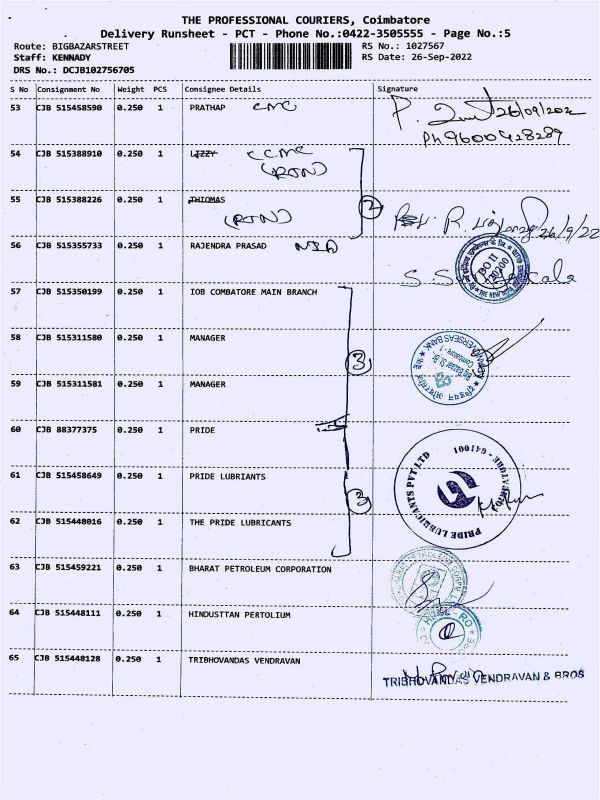 THE PROFESSIONAL COURIERS, Coimbatore
Delivery Runsheet - PCT - Phone No.:0422-3505555 - Page No.:5
Route: BIGBAZARSTREET RS No.: 1027567
Staff: KENNADY RS Date: 26-Sep-2022
DRS No.: DCJB102756705
S No Consignment No Weight PCS Consignee Details Signature
53 CJB 515458590 0.250 1 PRATHAP CMC 26/09/202
Ph 9600428289
54 CJB 515388910 0.250 1 LIZZY CCMC
(RTN)
55 CJB 515388226 0.250 1 THIOMAS
(RTN) 2 R. 26/9/22
56 CJB 515355733 0.250 1 RAJENDRA PRASAD NIA
57 CJB 515350199 0.250 1 IOB COMBATORE MAIN BRANCH
58 CJB 515311580 0.250 1 MANAGER 3
OVERSEAS BANK
59 CJB 515311581 0.250 1 MANAGER
60 CJB 88377375 0.250 1 PRIDE
61 CJB 515458649 0.250 1 PRIDE LUBRIANTS 3
PRIDE LUBRICANTS PVT LTD
COIMBATORE - 641001
62 CJB 515448016 0.250 1 THE PRIDE LUBRICANTS
63 CJB 515459221 0.250 1 BHARAT PETROLEUM CORPORATION
64 CJB 515448111 0.250 1 HINDUSTTAN PERTOLIUM
65 CJB 515448128 0.250 1 TRIBHOVANDAS VENDRAVAN
TRIBHOVANDAS VENDRAVAN & BROS